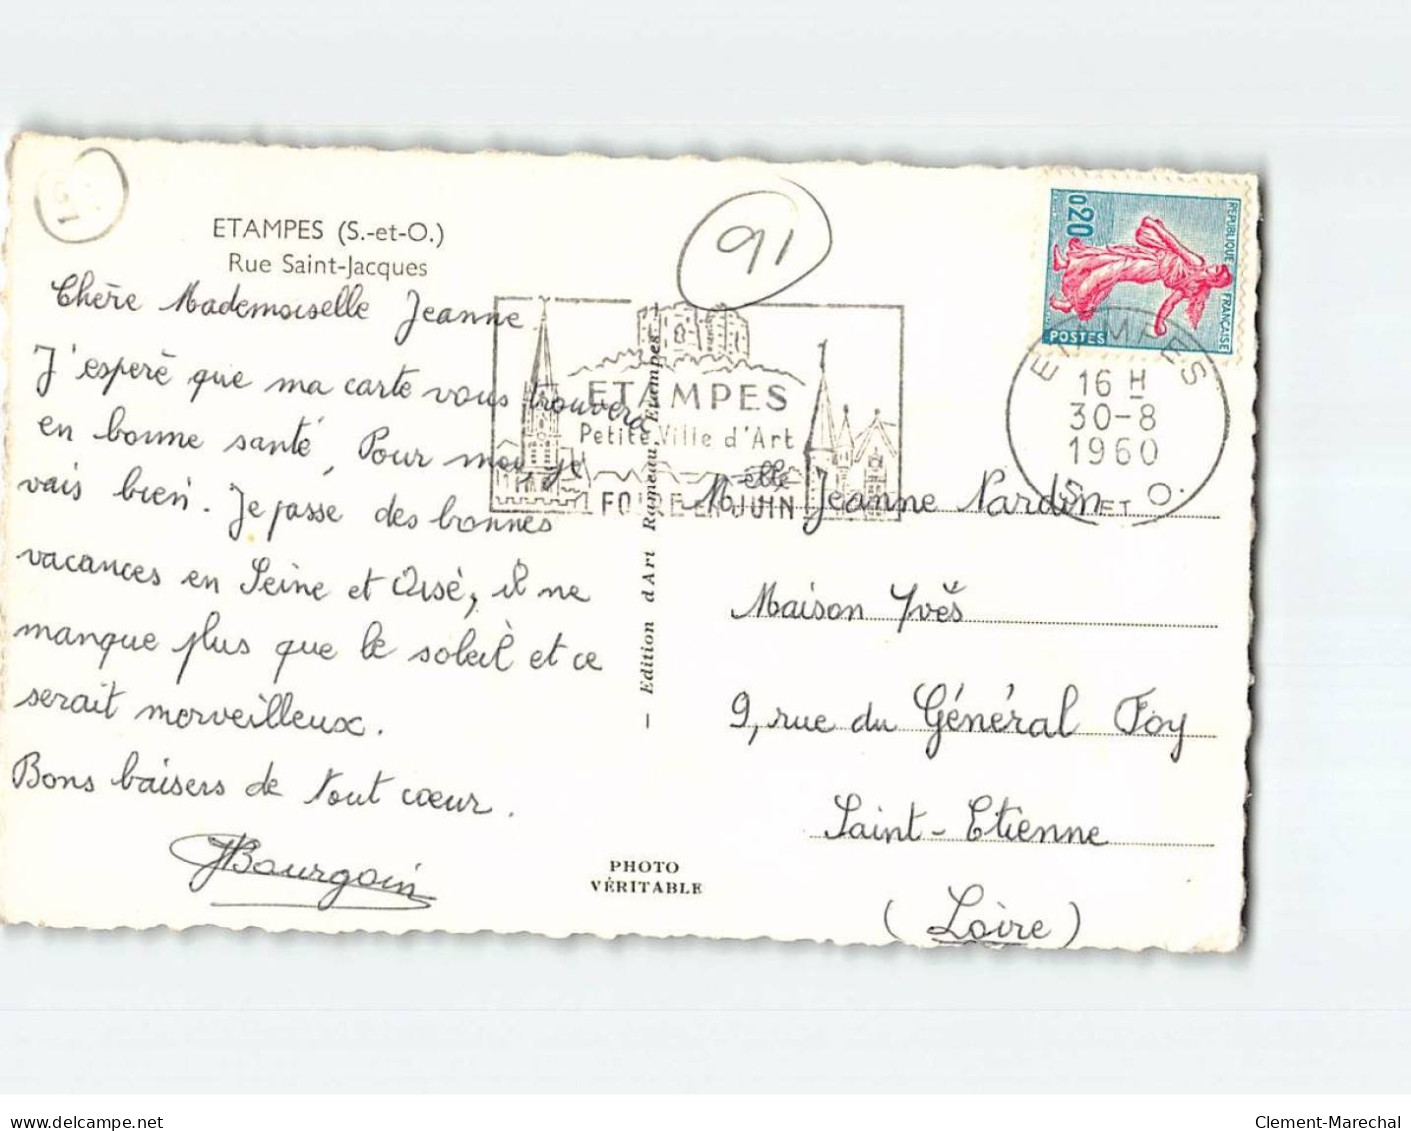 ETAMPES (S.-et-O.)
Rue Saint-Jacques
Chère Mademoiselle Jeanne.
J'espère que ma carte vous trouvera
en bonne santé, Pour moi, je
vais bien. Je passe des bonnes
vacances en Seine et Oise, il ne
manque plus que le soleil et ce
serait merveilleux.
Bons baisers de tout cœur.
JBourgoin
91
ETAMPES
Petite Ville d'Art
FOIRE EN JUIN
Edition d'Art Rameau, Etampes
PHOTO
VÉRITABLE
0,20
REPUBLIQUE FRANÇAISE
POSTES
ETAMPES
16 H
30-8
1960
S. ET O.
Melle Jeanne Nardin
Maison Yvès
9, rue du Général Foy
Saint-Etienne
(Loire)
www.delcampe.net
Clement-Marechal